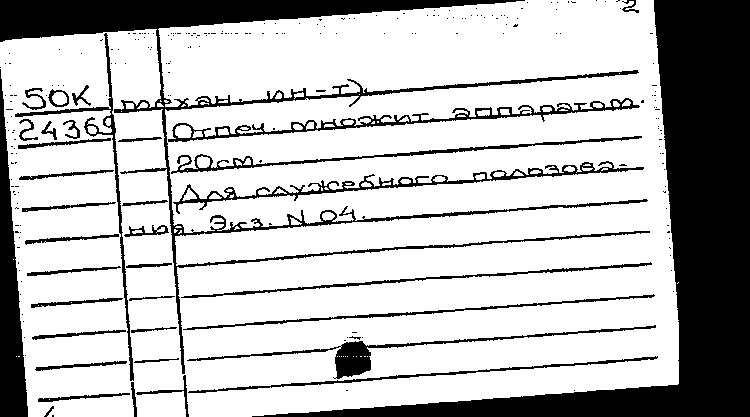 2
50К техан. ин-т).
24369 Отпеч. множит. аппаратом.
20см.
Для служебного пользова-
ния. Экз. N 04.